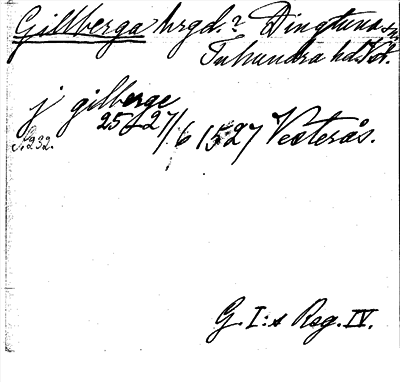 Gillberga hrgd.? Dingtuna sn,
Tuhundra hd. Vstm.
j gilberge
25-27/6 1527 Vesterås.
s. 232.
G. I:s Reg. IV.